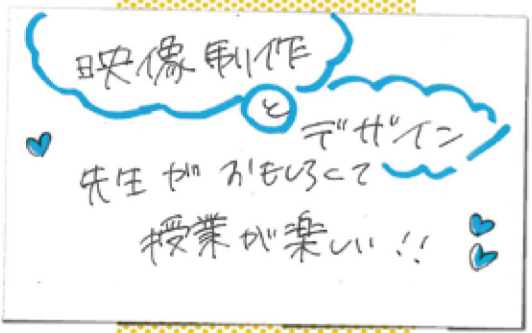 映像制作
と
デザイン
先生が おもしろくて
授業が楽しい!!